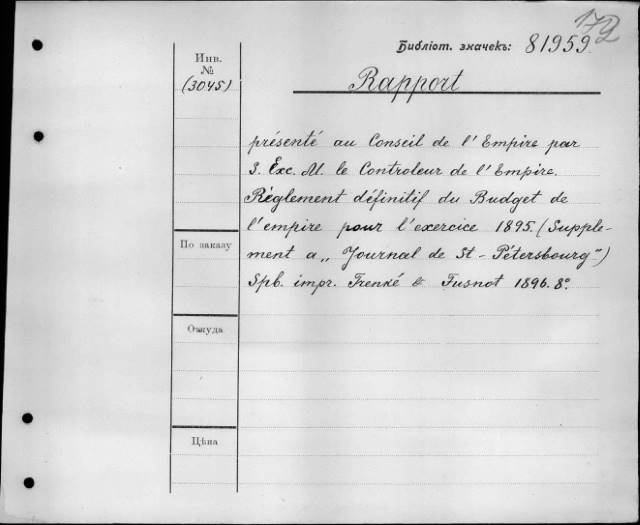 172
Библіот. значекъ: 81959.
Инв.
№
(3045)
Rapport
présenté au Conseil de l'Empire par
S. Exc. M. le Controleur de l'Empire.
Règlement définitif du Budget de
l'empire pour l'exercice 1895. (Supple-
ment a „Journal de St-Pétersbourg")
Spb. impr. Trenké & Fusnot 1896. 8°.
По заказу
Откуда
Цѣна